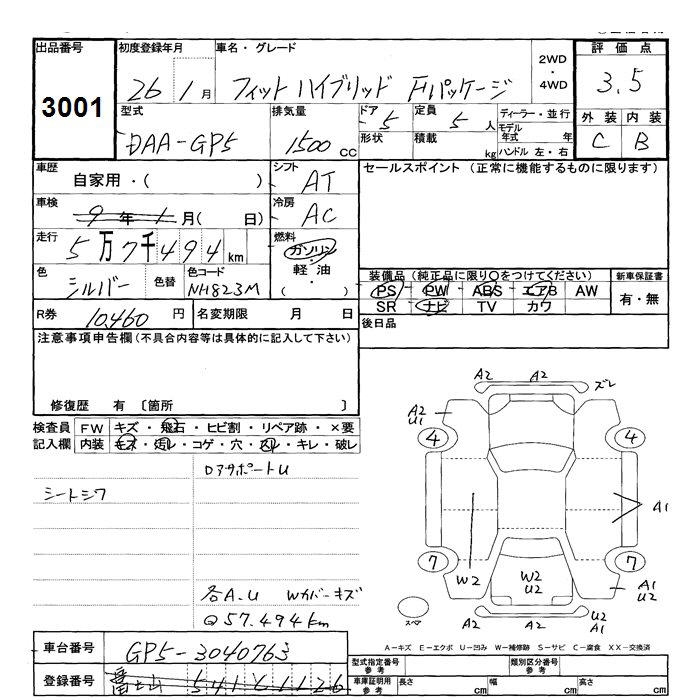 出品番号
3001
初度登録年月
26 1月
車名・グレード
フィット ハイブリッド Fパッケージ
2WD
・
4WD
評価点
3.5
型式
DAA-GP5
排気量
1500 cc
ドア 5
形状
定員 5 人
積載 kg
ディーラー・並行
モデル年式 年
ハンドル 左・右
外装 内装
C B
車歴
自家用・( )
シフト
AT
セールスポイント (正常に機能するものに限ります)
車検
9年1月( 日)
冷房
AC
走行
5万7千494km
燃料
ガソリン
・
軽油
( ・ )
色
シルバー
色替
色コード
NH823M
装備品 (純正品に限り○をつけてください)
PS PW ABS エアB AW
SR ナビ TV カワ
新車保証書
有・無
R券 10,460 円
名変期限 月 日
後日品
注意事項申告欄(不具合内容等は具体的に記入して下さい)
修復歴 有 〔箇所 〕
検査員記入欄
FW キズ・飛石・ヒビ割・リペア跡・×要
内装 キズ・汚レ・コゲ・穴・スレ・キレ・破レ
ロアサポートU
シートシワ
各A.U Wカバーキズ
◎57.494km
A2 A2 ズレ
A2
U1
4 4
A1
7 7
W2
W2
U2
A1
U2
スペア
A2 A2 U2
A1
A-キズ E-エクボ U-凹み W-補修跡 S-サビ C-腐食 XX-交換済
車台番号
GP5-3040763
登録番号
富士山 541
型式指定番号
参考
類別区分番号
参考
車庫証明用
参考
長さ cm
幅 cm
高さ cm